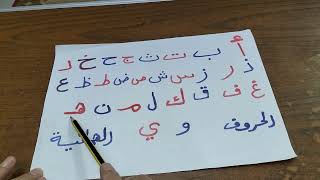 أ ب ت ث ج ح خ د
ذ ر ز س ش ص ض ط ظ ع
غ ف ق ك ل م ن هـ
الحروف و ي الهجائية